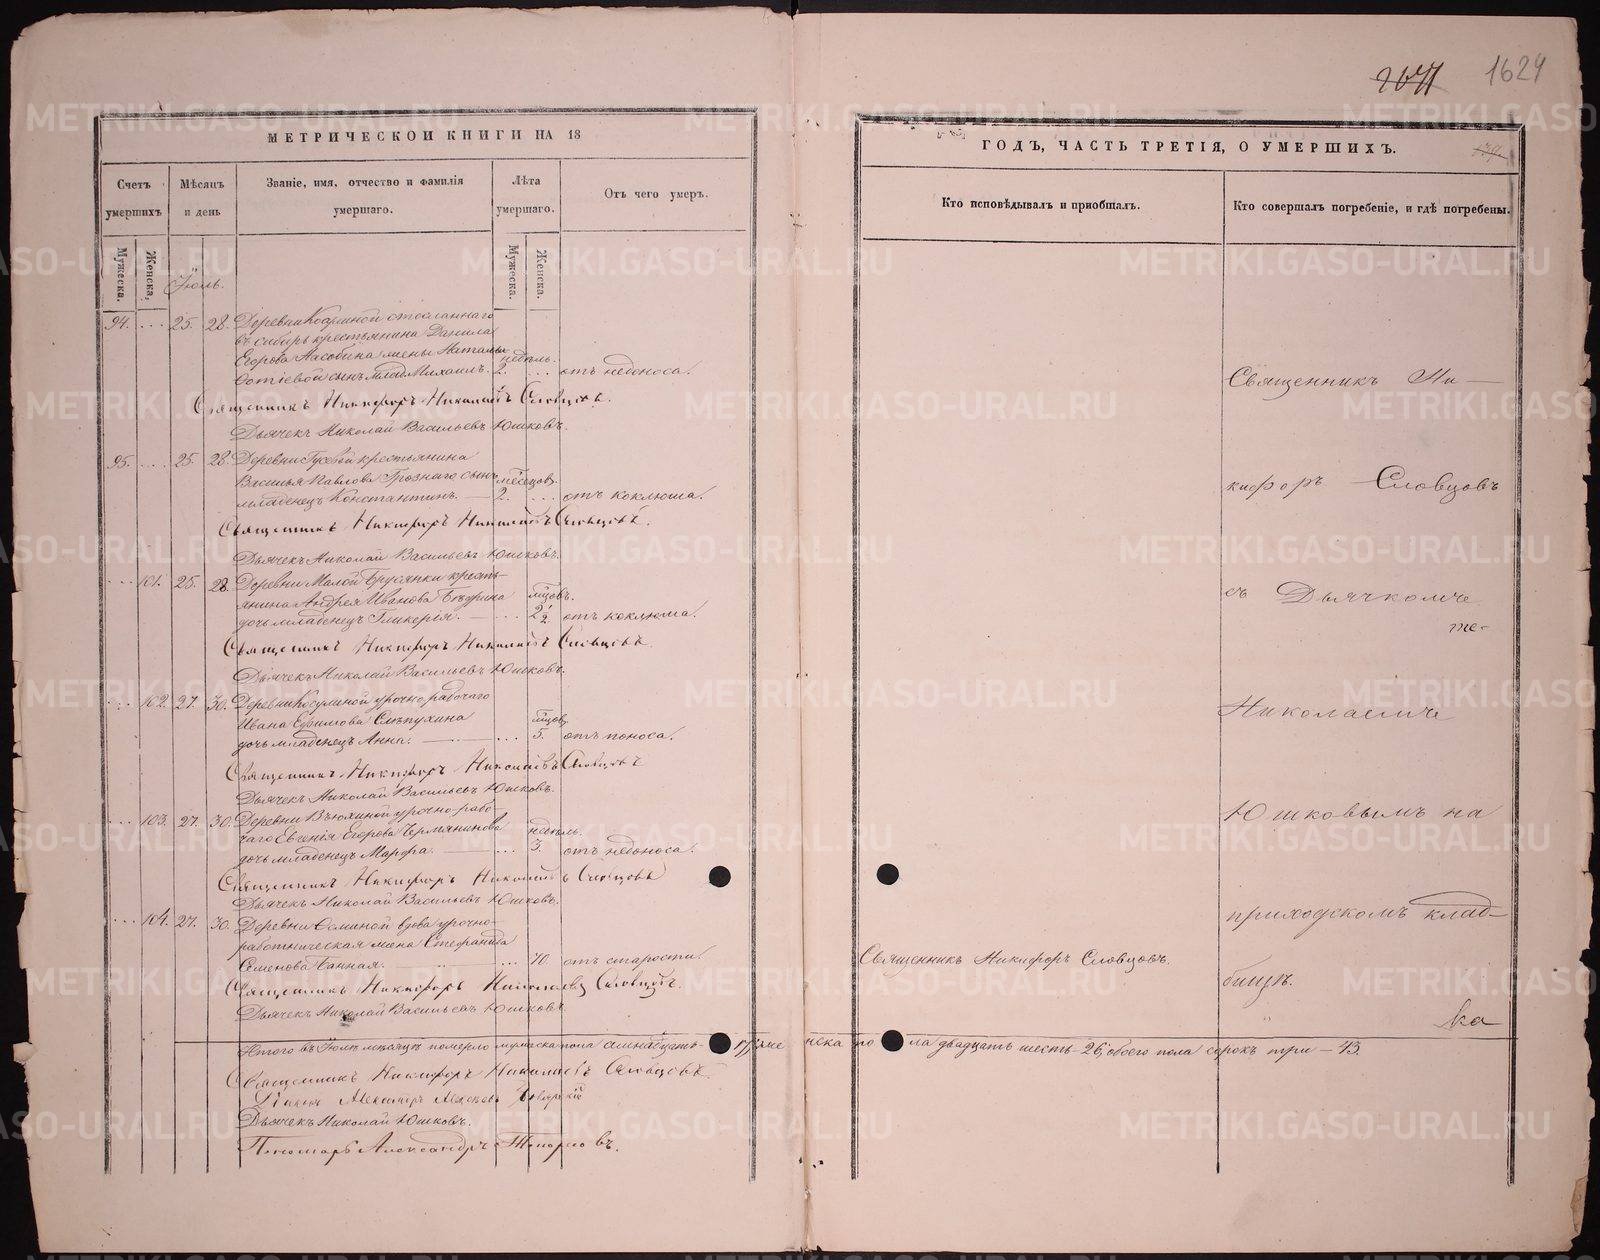 1624
МЕТРИЧЕСКОЙ КНИГИ НА 18
ГОДЪ, ЧАСТЬ ТРЕТІЯ, О УМЕРШИХЪ.
Счетъ умершихъ
Мѣсяцъ и день
Званіе, имя, отчество и фамилія умершаго.
Лѣта умершаго.
Отъ чего умеръ.
Кто исповѣдывалъ и пріобщалъ.
Кто совершалъ погребеніе, и гдѣ погребены.
Мужеска.
Женска.
Мужеска.
Женска.
Іюль.
94. ... 25. 28. Деревни
въ сибирь крестьянина Данила
Егорова жены Натальи недѣль.
Фотіевой сынъ млад. Михаилъ. 2. ... отъ недоноса.
Священникъ Никифоръ Николаевъ Словцовъ.
Дьячекъ Николай Васильевъ Юшковъ.
95. ... 25. 28. Деревни Гусевой крестьянина
Василья Павлова Грознаго сынъ месецов.
младенецъ Константинъ. — 2. ... отъ коклюша.
Священникъ Никифоръ Николаевъ Словцовъ.
Дьячекъ Николай Васильевъ Юшковъ.
... 101. 25. 28. Деревни Малой Брусянки кресть-
янина Андрея Иванова мѣцовъ.
дочь младенецъ Гликерія. — ... 2 1/2 отъ коклюша.
Священникъ Никифоръ Николаевъ Словцовъ.
Дьячекъ Николай Васильевъ Юшковъ.
... 102. 27. 30. Деревни урочно-рабочаго
Ивана Ефимова Слѣпухина мѣцов.
дочь младенецъ Анна. — ... 5. отъ поноса.
Священникъ Никифоръ Николаевъ Словцовъ
Дьячекъ Николай Васильевъ Юшковъ.
... 103. 27. 30. Деревни урочно-рабо-
чаго Евгенія Егорова Чермянинова недѣль.
дочь младенецъ Марфа. — ... 3. отъ недоноса.
Священникъ Никифоръ Николаевъ Словцовъ
Дьячекъ Николай Васильевъ Юшковъ.
... 104. 27. 30. Деревни вдова урочно-
работническая жена Стефанида
Семенова Банная. — ... 70. отъ старости.
Священникъ Никифоръ Николаевъ Словцовъ.
Дьячекъ Николай Васильевъ Юшковъ.
Священникъ Никифоръ Словцовъ.
Священникъ Ни—
кифоръ Словцовъ
съ Дьячкомъ
же-
Николаемъ
Юшковымъ на
приходскомъ клад-
бищѣ.
Итого въ Іюлѣ мѣсяцѣ померло мужеска пола семнадцать- 17, женска пола двадцать шесть- 26, обоего пола сорокъ три — 43.
Священникъ Никифоръ Николаевъ Словцовъ.
Діаконъ Александръ
Дьячекъ Николай Юшковъ.
Пономарь Александръ Топорковъ.
METRIKI.GASO-URAL.RU